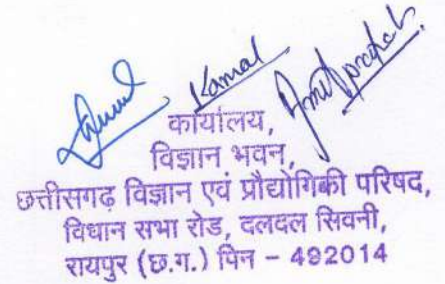 Kamal
कार्यालय,
विज्ञान भवन,
छत्तीसगढ़ विज्ञान एवं प्रौद्योगिकी परिषद,
विधान सभा रोड, दलदल सिवनी,
रायपुर (छ.ग.) पिन - 492014